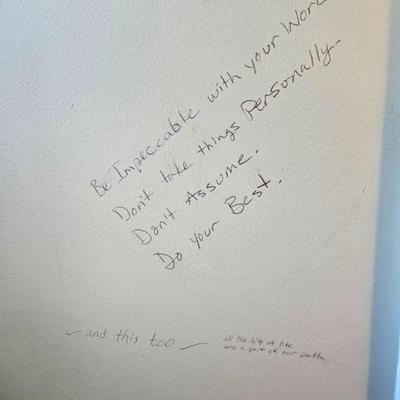 Be Impeccable with your Word
Don't take things Personally.
Don't Assume.
Do your Best.
and this too
all the bits of life
are a part of our